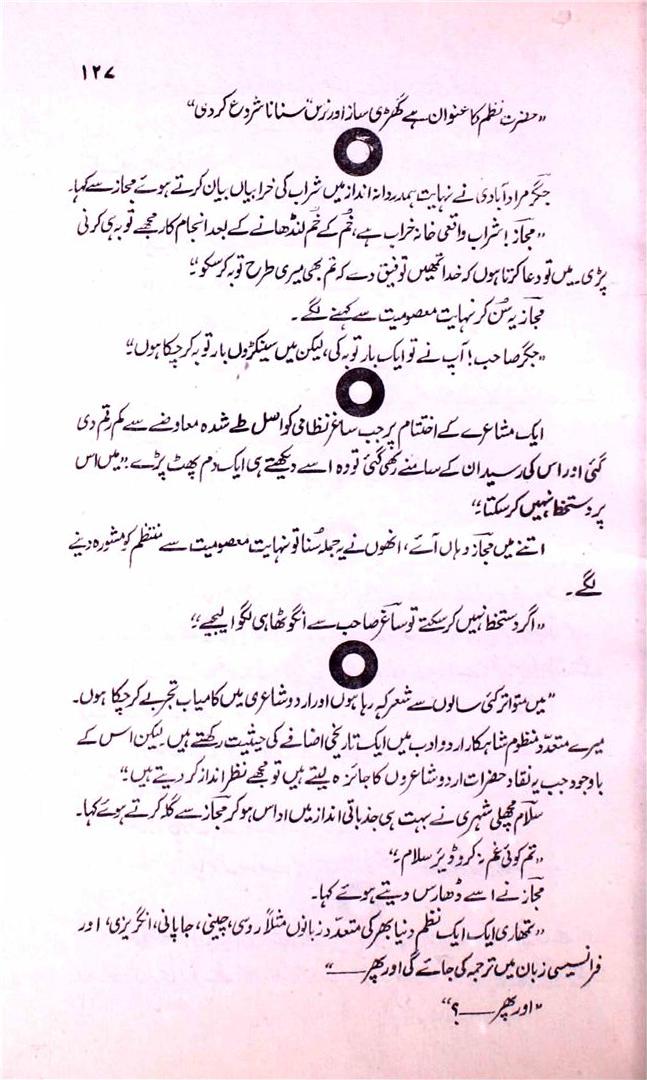 ۱۲۷
"حضرت نظم کا عنوان ہے گھڑی ساز اور نرس" سنانا شروع کر دی"
جگر مراد آبادی نے نہایت ہمدردانہ انداز میں شراب کی خرابیاں بیان کرتے ہوئے مجاز سے کہا۔
"مجاز! شراب واقعی خانہ خراب ہے، خُم کے خُم لنڈھانے کے بعد انجام کار مجھے توبہ ہی کرنی
پڑی۔ میں تو دعا کرتا ہوں کہ خدا تمھیں توفیق دے کہ تم بھی میری طرح توبہ کر سکو۔"
مجاز یہ سُن کر نہایت معصومیت سے کہنے لگے۔
"جگر صاحب! آپ نے تو ایک بار توبہ کی، لیکن میں سینکڑوں بار توبہ کر چکا ہوں۔"
ایک مشاعرے کے اختتام پر جب ساغر نظامی کو اصل طے شدہ معاوضے سے کم رقم دی
گئی اور اس کی رسید ان کے سامنے رکھی گئی تو وہ اسے دیکھتے ہی ایک دم پھٹ پڑے۔ "میں اس
پر دستخط نہیں کر سکتا۔"
اتنے میں مجاز وہاں آئے، انھوں نے یہ جملہ سُنا تو نہایت معصومیت سے منتظم کو مشورہ دینے
لگے۔
"اگر دستخط نہیں کر سکتے تو ساغر صاحب سے انگوٹھا ہی لگوا لیجیے۔"
"میں متواتر کئی سالوں سے شعر کہہ رہا ہوں اور اردو شاعری میں کامیاب تجربے کر چکا ہوں۔
میرے متعدّد منظوم شاہکار اردو ادب میں ایک تاریخی اضافے کی حیثیت رکھتے ہیں۔ لیکن اس کے
باوجود جب یہ نقاد حضرات اردو شاعروں کا جائزہ لیتے ہیں تو مجھے نظر انداز کر دیتے ہیں۔"
سلام مچھلی شہری نے بہت ہی جذباتی انداز میں اداس ہو کر مجاز سے گلہ کرتے ہوئے کہا۔
"تم کوئی غم نہ کرو ڈیئر سلام۔"
مجاز نے اسے ڈھارس دیتے ہوئے کہا۔
"تمھاری ایک ایک نظم دنیا بھر کی متعدّد زبانوں مثلاً روسی، چینی، جاپانی، انگریزی، اور
فرانسیسی زبان میں ترجمہ کی جائے گی اور پھر ——"
"اور پھر —— ؟"